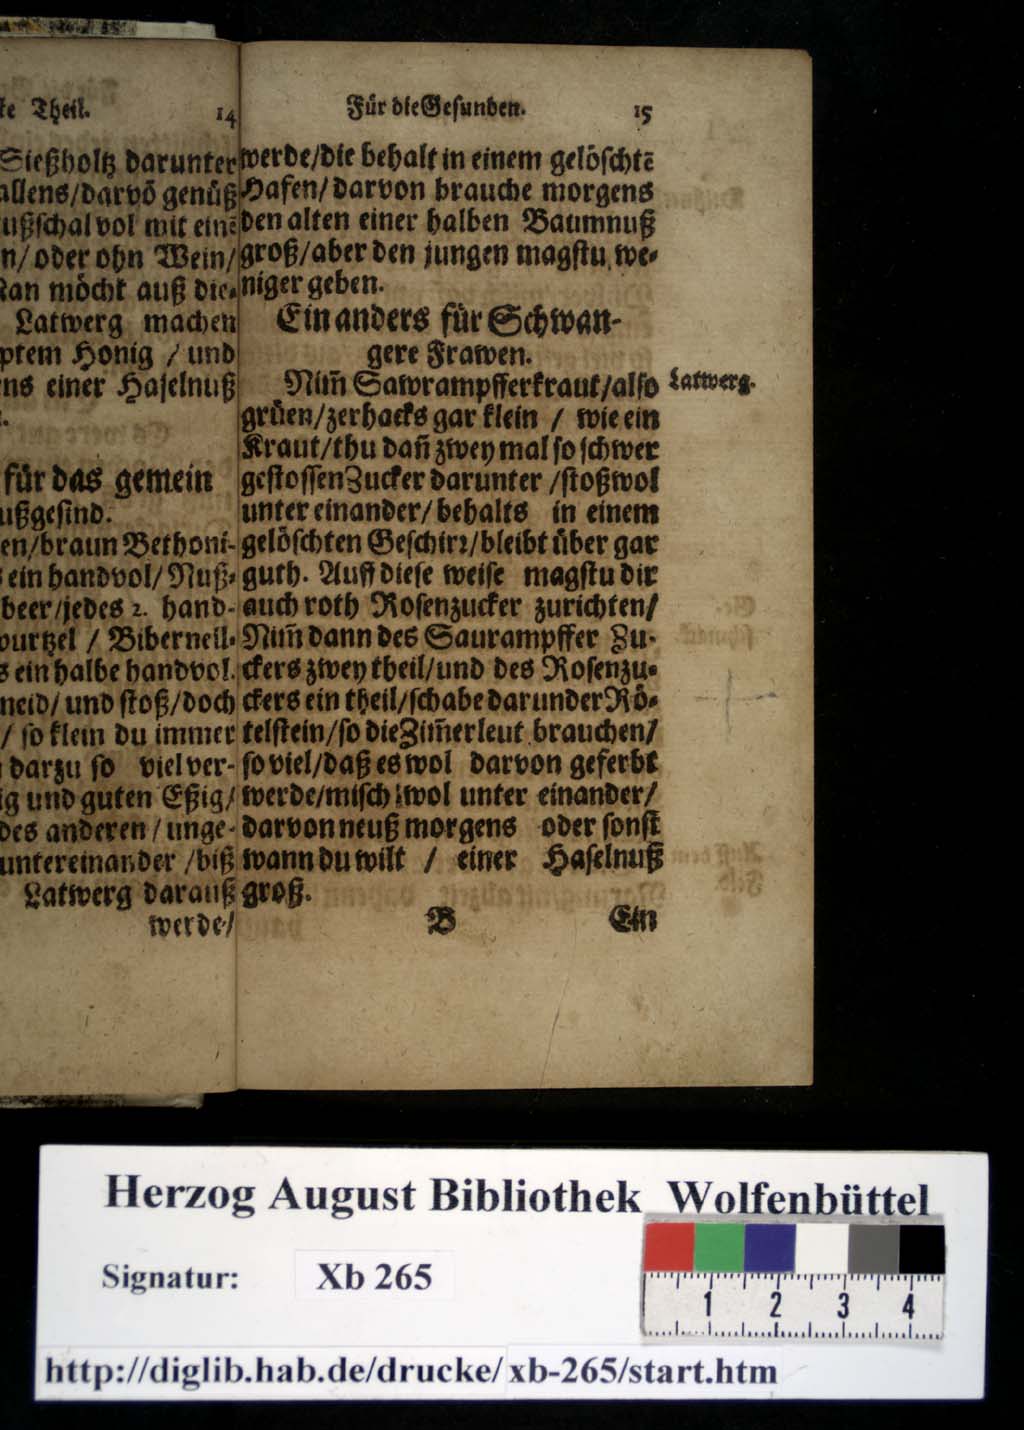 te Theil. 14
Sießholtz darunter
allens/darvõ genüß
ußschal vol mit einẽ
n/ oder ohn Wein/
Man möcht auß die⸗
Latwerg machen
ptem Honig / und
ns einer Haselnuß
.
für das gemein
ußgesind.
en/braun Bethoni-
s ein handvol/ Nuß⸗
beer/jedes 2. hand-
wurtzel / Bibernell⸗
s ein halbe handvol.
neid/ und stoß/doch
/ so klein du immer
darzu so viel ver-
ig und guten Eßig/
des anderen / unge-
untereinander /biß
Latwerg darauß
werde/
Für die Gesunden. 15
werde/die behalt in einem gelöschtẽ
Hafen/ darvon brauche morgens
den alten einer halben Baumnuß
groß/aber den jungen magstu we⸗
niger geben.
Ein anders für Schwan-
gere Frawen.
Nim̃ Sawrampfferkraut/also
grüen/zerhacks gar klein / wie ein
Kraut/thu dañ zwey mal so schwer
gestossen Zucker darunter /stoß wol
unter einander/ behalts in einem
gelöschten Geschirꝛ/bleibt über gar
guth. Auff diese weise magstu dir
auch roth Rosenzucker zurichten/
Nim̃ dann des Saurampffer Zu-
ckers zwey theil/und des Rosenzu⸗
ckers ein theil/schabe darunder Rö⸗
telstein/so die Zim̃erleut brauchen/
so viel/daß es wol darvon geferbt
werde/misch wol unter einander/
darvon neuß morgens oder sonst
wann du wilt / einer Haselnuß
groß.
B Ein
Latwerg.
Herzog August Bibliothek Wolfenbüttel
Signatur: Xb 265
1 2 3 4
http://diglib.hab.de/drucke/xb-265/start.htm